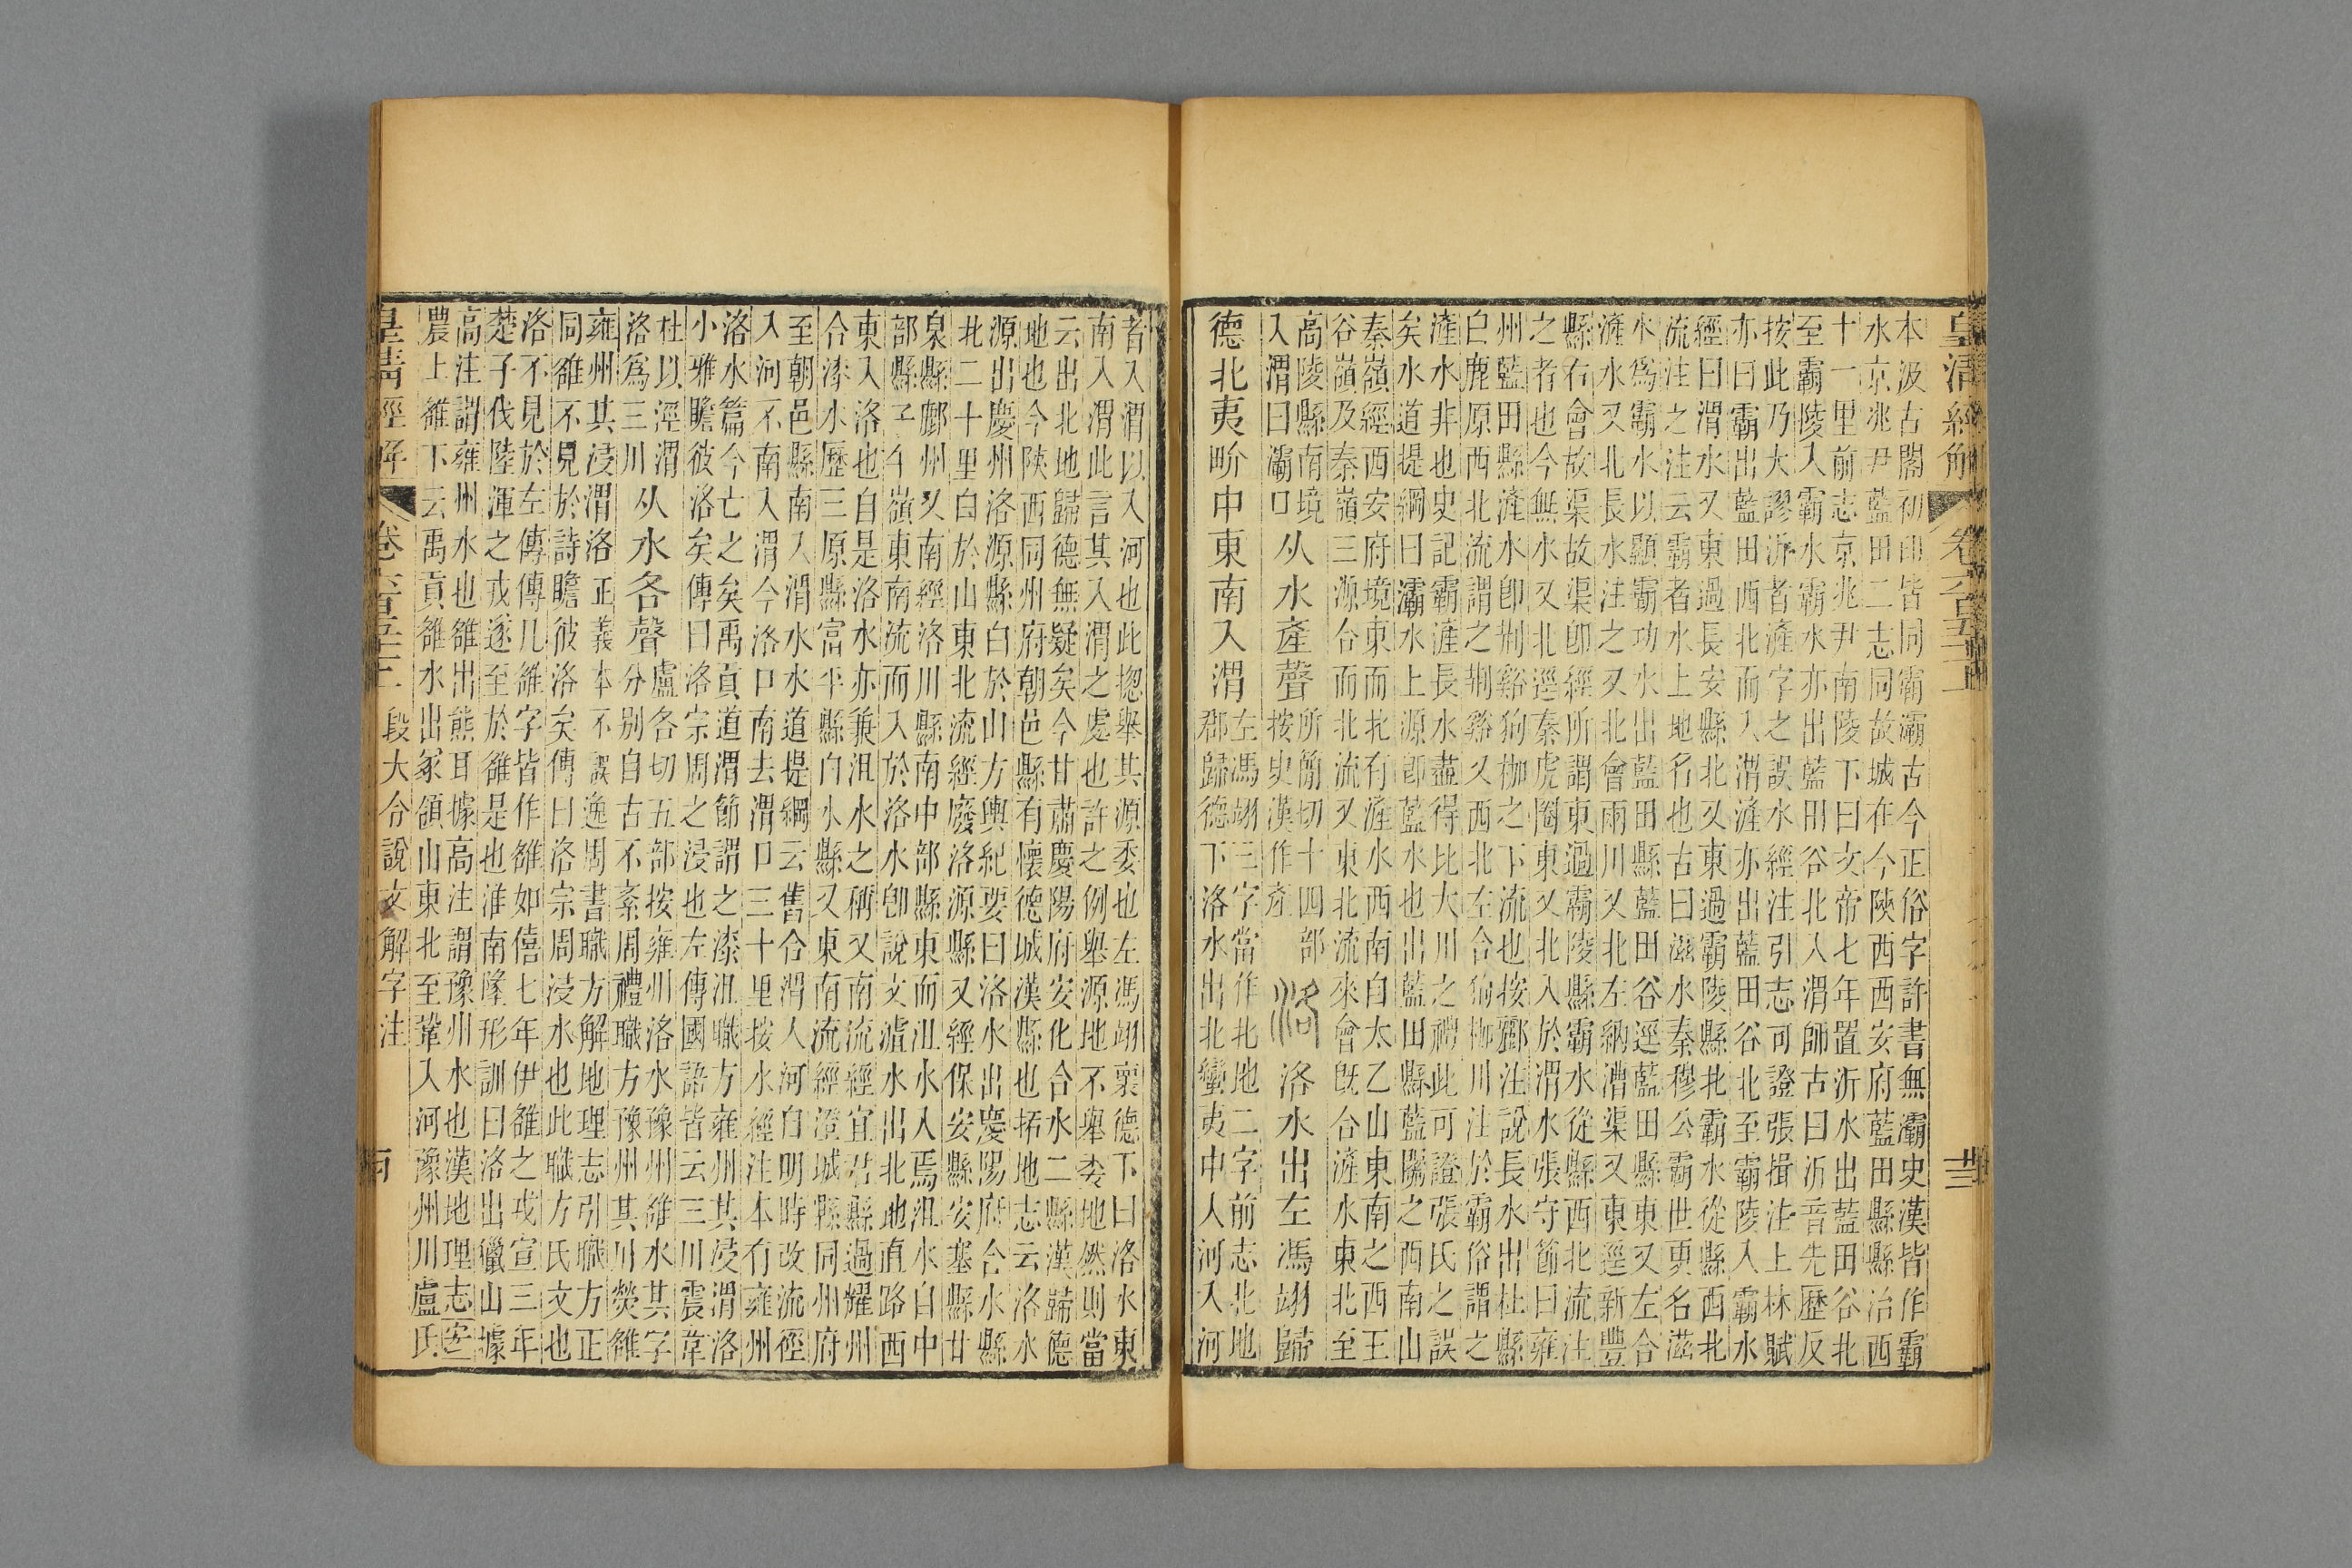 皇清經解 卷六百五十二 廿三
本汲古閣初印皆同霸灞古今正俗字許書無灞史漢皆作霸
水京兆尹藍田二志同故城在今陝西西安府藍田縣縣治西
十一里前志京兆尹南陵下曰文帝七年置沂水出藍田谷北
至霸陵入霸水霸水亦出藍田谷北入渭師古曰沂音先歷反
按此乃大謬沂者滻字之誤水經注引志可證張揖注上林賦
亦曰霸出藍田西北而入渭滻亦出藍田谷北至霸陵入霸水
經曰渭水又東過長安縣北又東過霸陵縣北霸水從縣西北
流注之注云霸者水上地名也古曰滋水秦穆公霸世更名滋
水爲霸水以顯霸功水出藍田縣藍田谷逕藍田縣東又左合
滻水又北長水注之又北會兩川又北左納漕渠又東逕新豐
縣右會故渠故渠卽經所謂東過霸陵縣霸水從縣西北流注
之者也今無水又北逕秦虎圈東又北入於渭水張守節曰雍
州藍田縣滻水卽荆谿狗枷之下流也按酈注說長水出杜縣
白鹿原西北流謂之荆谿又西北左合狗枷川注於霸俗謂之
滻水非也史記霸滻長水盡得比大川之禮此可證張氏之誤
矣水道提綱曰灞水上源卽藍水也出藍田縣藍關之西南山
秦嶺經西安府境東而北有滻水西南自太乙山東南之西王
谷嶺及秦嶺三源合而北流又東北流來會旣合滻水東北至
高陵縣南境
入渭曰灞口
从水產聲
所簡切十四部
按史漢作產
洛水出左馮翊歸
德北夷畍中東南入渭
左馮翊三字當作北地二字前志北地
郡歸德下洛水出北蠻夷中人河入河
者入渭以入河也此揔舉其源委也左馮翊褱德下曰洛水東
南入渭此言其入渭之處也許之例舉源地不舉委地然則當
云出北地歸德無疑矣今甘肅慶陽府安化合水二縣漢歸德
地也今陝西同州府朝邑縣有懷德城漢縣也括地志云洛水
源出慶州洛源縣白於山方輿紀要曰洛水出慶陽府合水縣
北二十里白於山東北流經廢洛源縣又經保安縣安塞縣甘
泉縣鄜州又南經洛川縣南中部縣東而沮水入焉沮水自中
部縣子午嶺東南流而入於洛水卽說文瀘水出北地直路西
東入洛也自是洛水亦兼沮水之稱又南流經宜君縣過耀州
合漆水歷三原縣富平縣白水縣又東南流經澄城縣同州府
至朝邑縣南入渭水水道提綱云舊合渭人河自明時改流徑
入河不南入渭今洛口南去渭口三十里按水經注本有雍州
洛水篇今亡之矣禹貢道渭節謂之漆沮職方雍州其浸渭洛
小雅瞻彼洛矣傳曰洛宗周之浸也左傳國語皆云三川震韋
杜以涇渭
洛爲三川
从水各聲
盧各切五部按雍州洛水豫州雒水其字
分別自古不紊周禮職方豫州其川熒雒
雍州其浸渭洛正義本不誤逸周書職方解地理志引職方正
同雒不見於詩瞻彼洛矣傳曰洛宗周浸水也此職方氏文也
洛不見於左傳傳凡雒字皆作雒如僖七年伊雒之戎宣三年
楚子伐陸渾之戎遂至於雒是也淮南墬形訓曰洛出獵山據
高注謂雍州水也雒出熊耳據高注謂豫州水也漢地理志宏
農上雒下云禹貢雒水出冢領山東北至鞏入河豫州川盧氏
皇清經解 卷六百五十二 段大令說文解字注